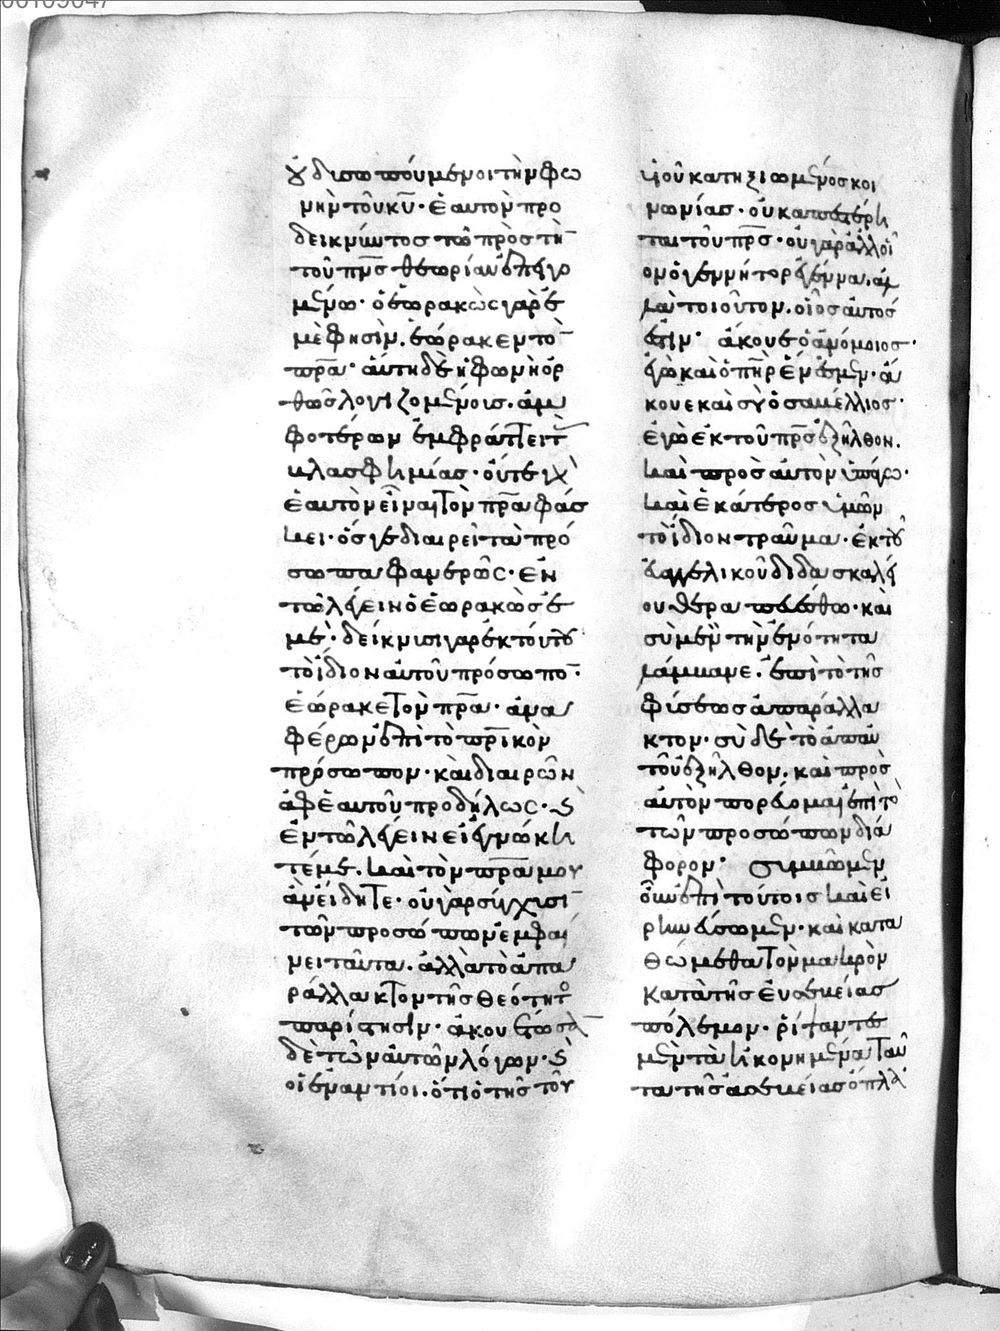 οὐ δυσωπούμενοι τὴν φω
νὴν τοῦ κ̅υ̅· ἑαυτὸν προ
δεικνύντος τῶ πρὸς τὴν
τοῦ π̅ρ̅ς θεωρίαν ἐπειγο
μένω· ὁ ἑωρακὼς γὰρ ἐ
μὲ φησὶν. ἑώρακεν τὸν
π̅ρ̅α· αὕτη δὲ ἡ φωνὴ ὀρ
θῶς λογιζομένοις. ἀμ
φοτέρων ἐμφράττει τ
βλασφημίας· οὔτε γὰρ
ἑαυτὸν εἶναι τὸν π̅ρ̅α φάσ
κει· ὅς γε διαιρεῖ τὰ πρό
σωπα φανερῶς· ἐν
τῶ λέγειν ὁ ἑωρακὼς ἐ
μέ· δείκνυσι γὰρ ἐκ τούτου
τὸ ἴδιον αὐτοῦ πρόσωπον·
ἑώρακε τὸν π̅ρ̅α· ἀνα
φέρων ἐπὶ τὸ π̅ρ̅ικὸν
πρόσωπον· καὶ διαιρῶν
ἀφ ἑαυτοῦ προδήλως· καὶ
ἐν τῶ λέγειν εἰ ἐγνώκει
τέ με. καὶ τὸν π̅ρ̅α μου
ἂν ἤδειτε· οὐ γὰρ σύγχυσιν
τῶν προσώπων ἐμφαί
νει ταῦτα. ἀλλὰ τὸ ἀπα
ράλλακτον τῆς θεότητο
παρίστησιν· ἀκουέτωσαν
δὲ τῶν αὐτῶν λόγων· καὶ
οἱ ἐναντίοι. ὅτι ὁ τῆς τοῦ
υἱοῦ κατηξιωμένος κοι
νωνίας· οὐκ ἀπεστέρη
ται τοῦ π̅ρ̅ς· οὐ γὰρ ἀλλοῖ
ον ὁ γεννήτωρ ἐγέννα. ἀλ
λὰ τοιοῦτον. οἷος αὐτός
ἐστιν· ἄκουε ὁ ἀνόμοιος·
ἐγὼ καὶ ὁ π̅η̅ρ ἕν ἐσμεν· ἄ
κουε καὶ σὺ ὁ σαβέλλιος·
ἐγὼ ἐκ τοῦ π̅ρ̅ς ἐξῆλθον.
καὶ πρὸς αὐτὸν ὑπάγω·
καὶ ἑκάτερος ὑμῶν
τὸ ἴδιον τραῦμα· ἐκ τοῦ
εὐαγγελικοῦ διδασκαλεί
ου θεραπευέσθω· καὶ
σὺ μὲν τὴν ἑνότητα
λάμβανε. ἐπὶ τὸ τῆς
φύσεως ἀπαράλλα
κτον· σὺ δὲ τὸ ἀπ αὐ
τοῦ ἐξῆλθον. καὶ πρὸς
αὐτὸν πορεύομαι ἐπὶ τὸ
τῶν προσώπων διά
φορον· στῶμεν
οὖν ἐπὶ τούτοις καὶ εἰ
ρηνεύσωμεν· καὶ κατα
θώμεθα τὸν μακρὸν
κατὰ τῆς εὐσεβείας
πόλεμον· ῥίψαντε
μὲν τὰ ἠκονημένα ταῦ
τα τῆς ἀσεβείας ὅπλα